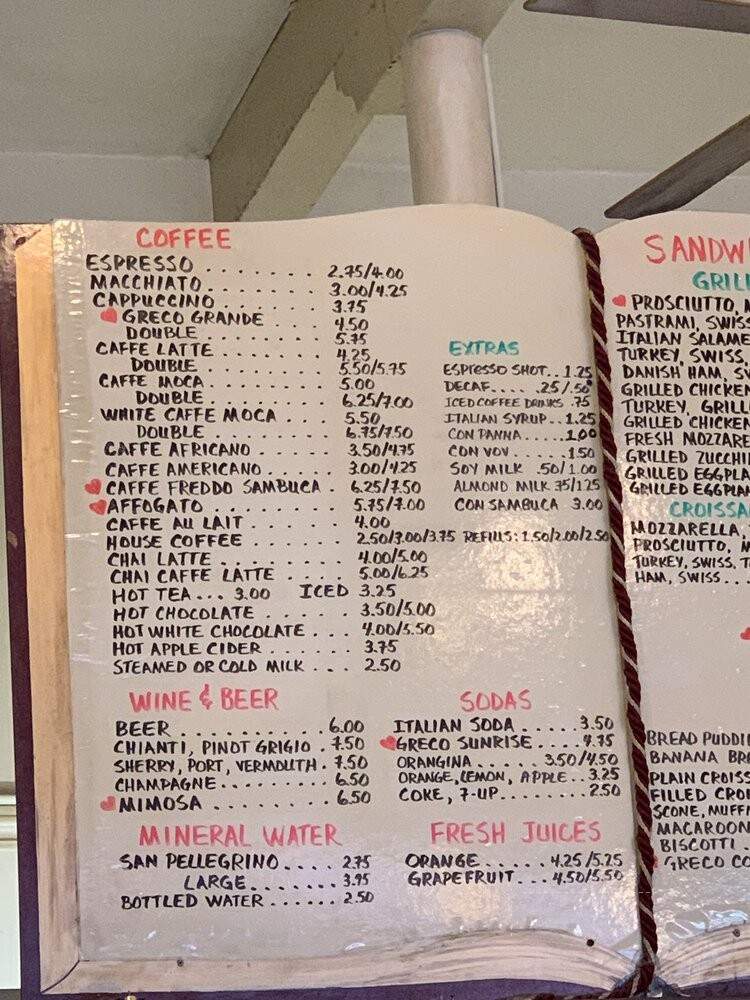 COFFEE
ESPRESSO . . . . . . . 2.75/4.00
MACCHIATO . . . . . . . 3.00/4.25
CAPPUCCINO . . . . . . 3.75
GRECO GRANDE . . . 4.50
DOUBLE . . . . . . . 5.75
CAFFE LATTE . . . . . . . 4.25
DOUBLE . . . . . . . 5.50/5.75
CAFFE MOCA . . . . . . . 5.00
DOUBLE . . . . . . . 6.25/7.00
WHITE CAFFE MOCA . . . 5.50
DOUBLE . . . . . . . 6.75/7.50
CAFFE AFRICANO . . . . . 3.50/4.75
CAFFE AMERICANO . . . . . 3.00/4.25
CAFFE FREDDO SAMBUCA . 6.25/7.50
AFFOGATO . . . . . . . 5.75/7.00
CAFFE AU LAIT . . . . . 4.00
HOUSE COFFEE . . . . . . 2.50/3.00/3.75 REFILLS: 1.50/2.00/2.50
CHAI LATTE . . . . . . . 4.00/5.00
CHAI CAFFE LATTE . . . . 5.00/6.25
HOT TEA ... 3.00 ICED 3.25
HOT CHOCOLATE . . . . . 3.50/5.00
HOT WHITE CHOCOLATE . . . 4.00/5.50
HOT APPLE CIDER . . . . . 3.75
STEAMED OR COLD MILK . . . 2.50
EXTRAS
ESPRESSO SHOT.. 1.25
DECAF.... .25/.50
ICED COFFEE DRINKS .75
ITALIAN SYRUP.. 1.25
CON PANNA ..... 1.00
CON VOV ..... 1.50
SOY MILK .50/1.00
ALMOND MILK .75/1.25
CON SAMBUCA 3.00
WINE & BEER
BEER ........... 6.00
CHIANTI, PINOT GRIGIO . 7.50
SHERRY, PORT, VERMOUTH . 7.50
CHAMPAGNE......... 6.50
MIMOSA ......... 6.50
SODAS
ITALIAN SODA ..... 3.50
GRECO SUNRISE .... 4.75
ORANGINA ..... 3.50/4.50
ORANGE, LEMON, APPLE.. 3.25
COKE, 7-UP........ 2.50
MINERAL WATER
SAN PELLEGRINO.... 2.75
LARGE....... 3.95
BOTTLED WATER ...... 2.50
FRESH JUICES
ORANGE ..... 4.25/5.25
GRAPEFRUIT... 4.50/5.50
SANDW
GRILL
PROSCIUTTO, M
PASTRAMI, SWISS
ITALIAN SALAME
TURKEY, SWISS
DANISH HAM, SW
GRILLED CHICKEN
TURKEY, GRILL
GRILLED CHICKEN
FRESH MOZZARE
GRILLED ZUCCHI
GRILLED EGGPLA
GRILLED EGGPLAN
CROISSA
MOZZARELLA,
PROSCIUTTO, M
TURKEY, SWISS, T
HAM, SWISS...
BREAD PUDDI
BANANA BRE
PLAIN CROISS
FILLED CROI
SCONE, MUFFI
MACAROON
BISCOTTI .
GRECO CO